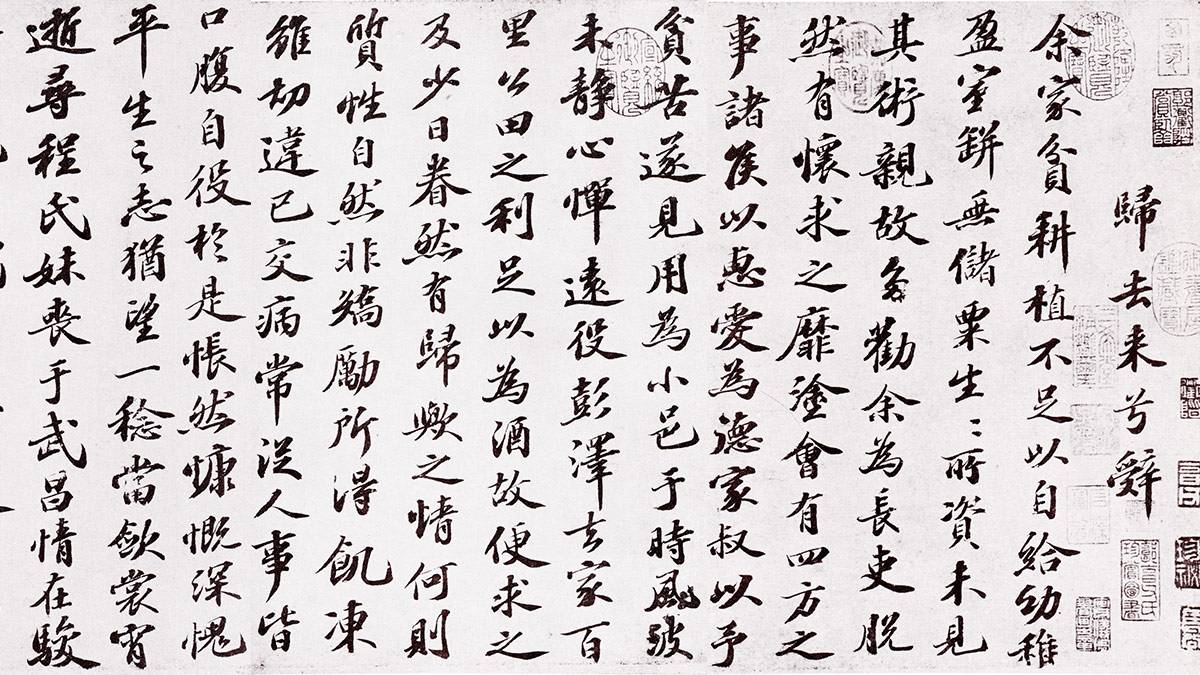 歸去来兮辭
余家貧耕植不足以自給幼稚
盈室缾無儲粟生〻所資未見
其術親故多勸余為長吏脱
然有懷求之靡塗會有四方之
事諸侯以惠愛為德家叔以予
貧苦遂見用為小邑于時風波
未静心惮遠役彭澤去家百
里公田之利足以為酒故便求之
及少日眷然有歸歟之情何則
質性自然非矯勵所得飢凍
雖切違己交病常從人事皆
口腹自役於是悵然慷慨深愧
平生之志猶望一稔當歛裳宵
逝尋程氏妹喪于武昌情在駿